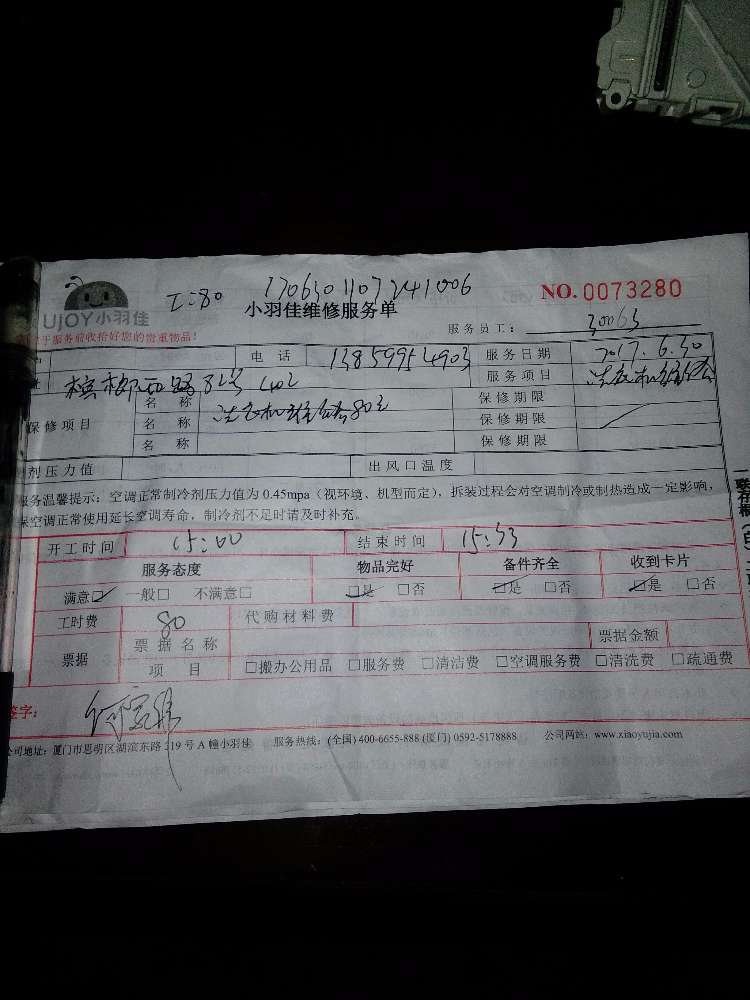 工=80 170630110724l006
UJOY小羽佳 小羽佳维修服务单 NO.0073280
于服务前收拾好您的贵重物品! 服务员工: 30063
电话 13859954903 服务日期 2017.6.30
槟榔西路82号402 服务项目 洗衣机维修
保修项目 名称 洗衣机维修80元 保修期限
名称 保修期限
名称 保修期限
剂压力值 出风口温度
服务温馨提示: 空调正常制冷剂压力值为 0.45mpa (视环境、机型而定), 拆装过程会对空调制冷或制热造成一定影响,
保空调正常使用延长空调寿命, 制冷剂不足时请及时补充。
开工时间 15:00 结束时间 15:53
服务态度 物品完好 备件齐全 收到卡片
满意☑ 一般□ 不满意□ ☑是 □否 ☑是 □否 ☑是 □否
工时费 80 代购材料费
票据 票据名称 票据金额
项目 □搬办公用品 □服务费 □清洁费 □空调服务费 □清洗费 □疏通费
签字:
公司地址: 厦门市思明区湖滨东路 319 号 A 幢小羽佳 服务热线: (全国) 400-6655-888 (厦门) 0592-5178888 公司网站: www.xiaoyujia.com